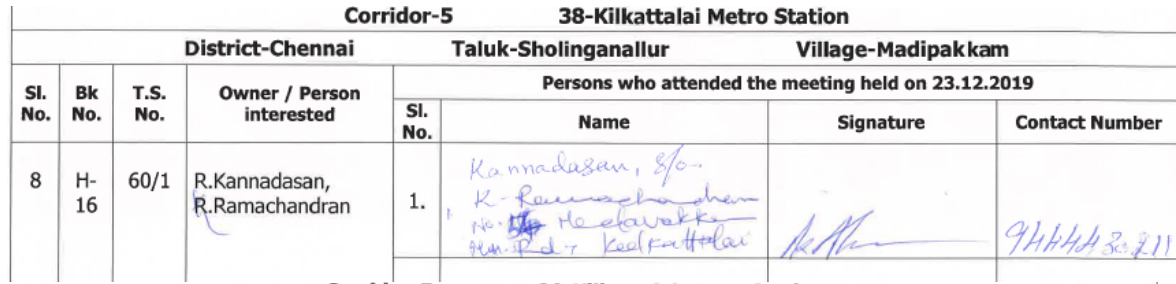 Corridor-5 38-Kilkattalai Metro Station
District-Chennai Taluk-Sholinganallur Village-Madipakkam
Sl. No. Bk No. T.S. No. Owner / Person interested Persons who attended the meeting held on 23.12.2019
Sl. No. Name Signature Contact Number
8 H-16 60/1 R.Kannadasan, R.Ramachandran 1.
Kannadasan, S/o-
K-Ramachandran
No. Medavakkam
Rd, Keelkattalai